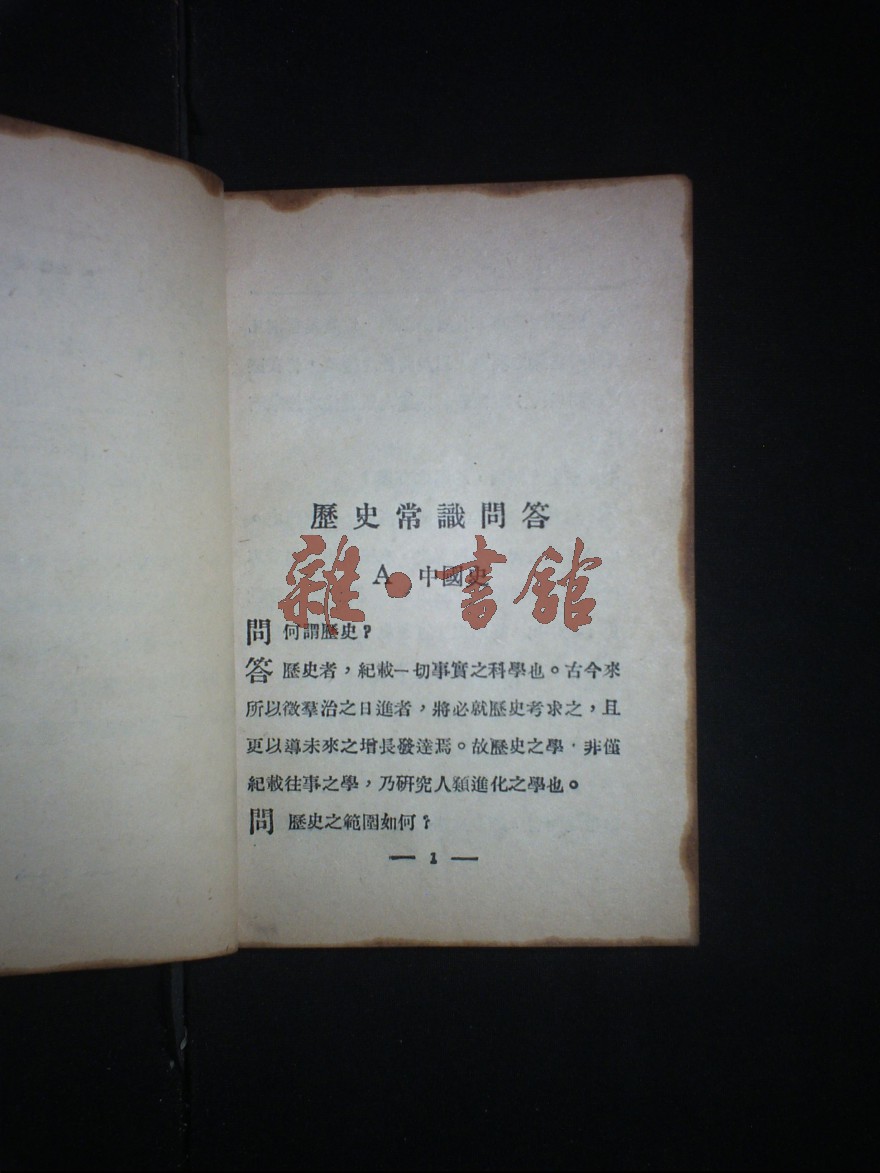 歷史常識問答
A 中國史
雜·書館
問 何謂歷史？
答 歷史者，紀載一切事實之科學也。古今來
所以徵羣治之日進者，將必就歷史考求之，且
更以導未來之增長發達焉。故歷史之學，非僅
紀載往事之學，乃硏究人類進化之學也。
問 歷史之範圍如何？
— 1 —